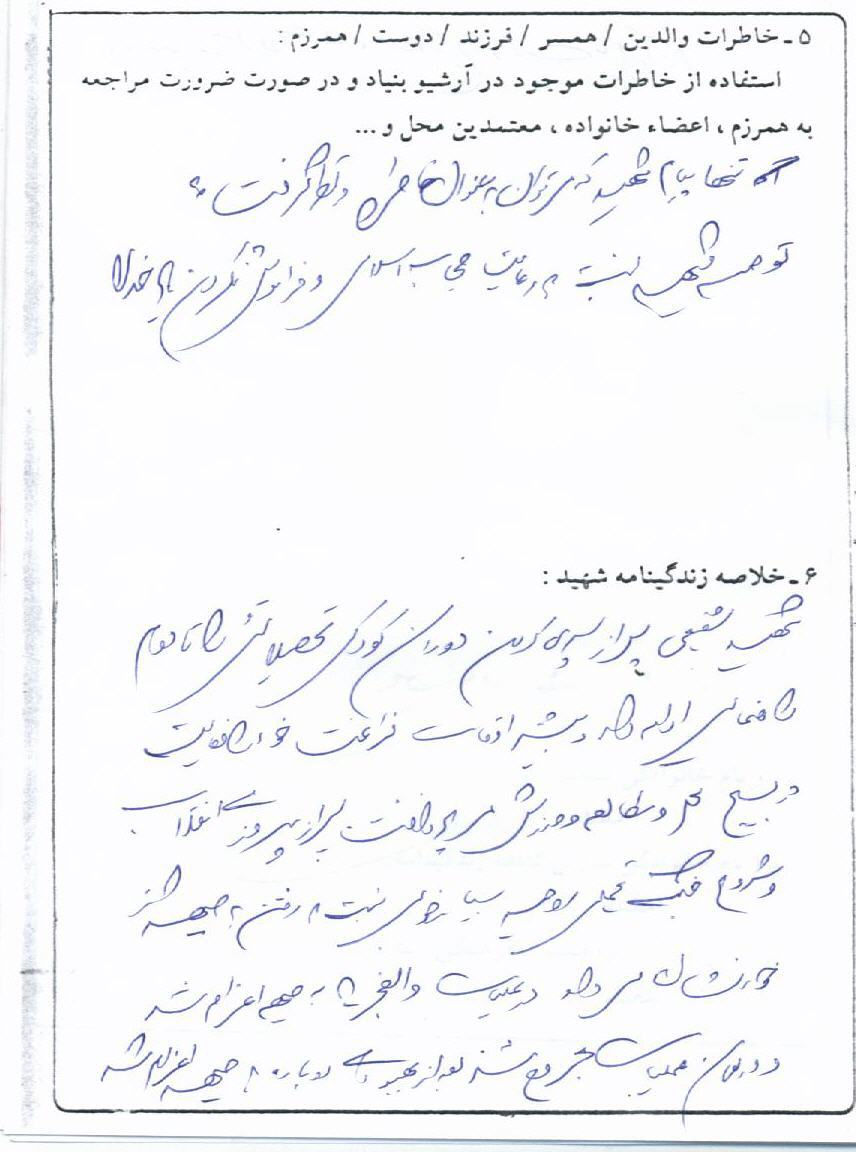 ۵ ـ خاطرات والدین / همسر / فرزند / دوست / همرزم :
استفاده از خاطرات موجود در آرشیو بنیاد و در صورت ضرورت مراجعه
به همرزم ، اعضاء خانواده ، معتمدین محل و ...
تنها پیام شهید که می توان به عنوان خاطره در نظر گرفت
توصیه شهید نسبت به رعایت حجاب اسلامی و فراموش نکردن یاد خدا
۶ ـ خلاصه زندگینامه شهید :
شهید شفیعی پس از سپری کردن دوران کودکی تحصیلاتش را تا دوم
راهنمائی ادامه داد و بیشتر اوقات فراغت خود را فعالیت
در بسیج محل و مطالعه و ورزش می پرداخت پس از پیروزی انقلاب
و شروع جنگ تحمیلی روحیه بسیار خوبی نسبت به رفتن به جبهه از
خود نشان می داد در عملیات والفجر ۸ به جبهه اعزام شد
و در همان عملیات مجروح شد بعد از بهبودی دوباره به جبهه اعزام شد